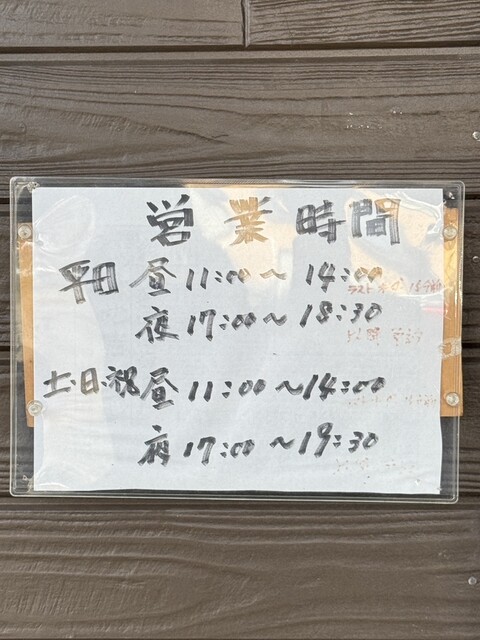 営業時間
平日 昼 11:00～14:00
夜 17:00～18:30
土・日・祝 昼 11:00～14:00
夜 17:00～19:30